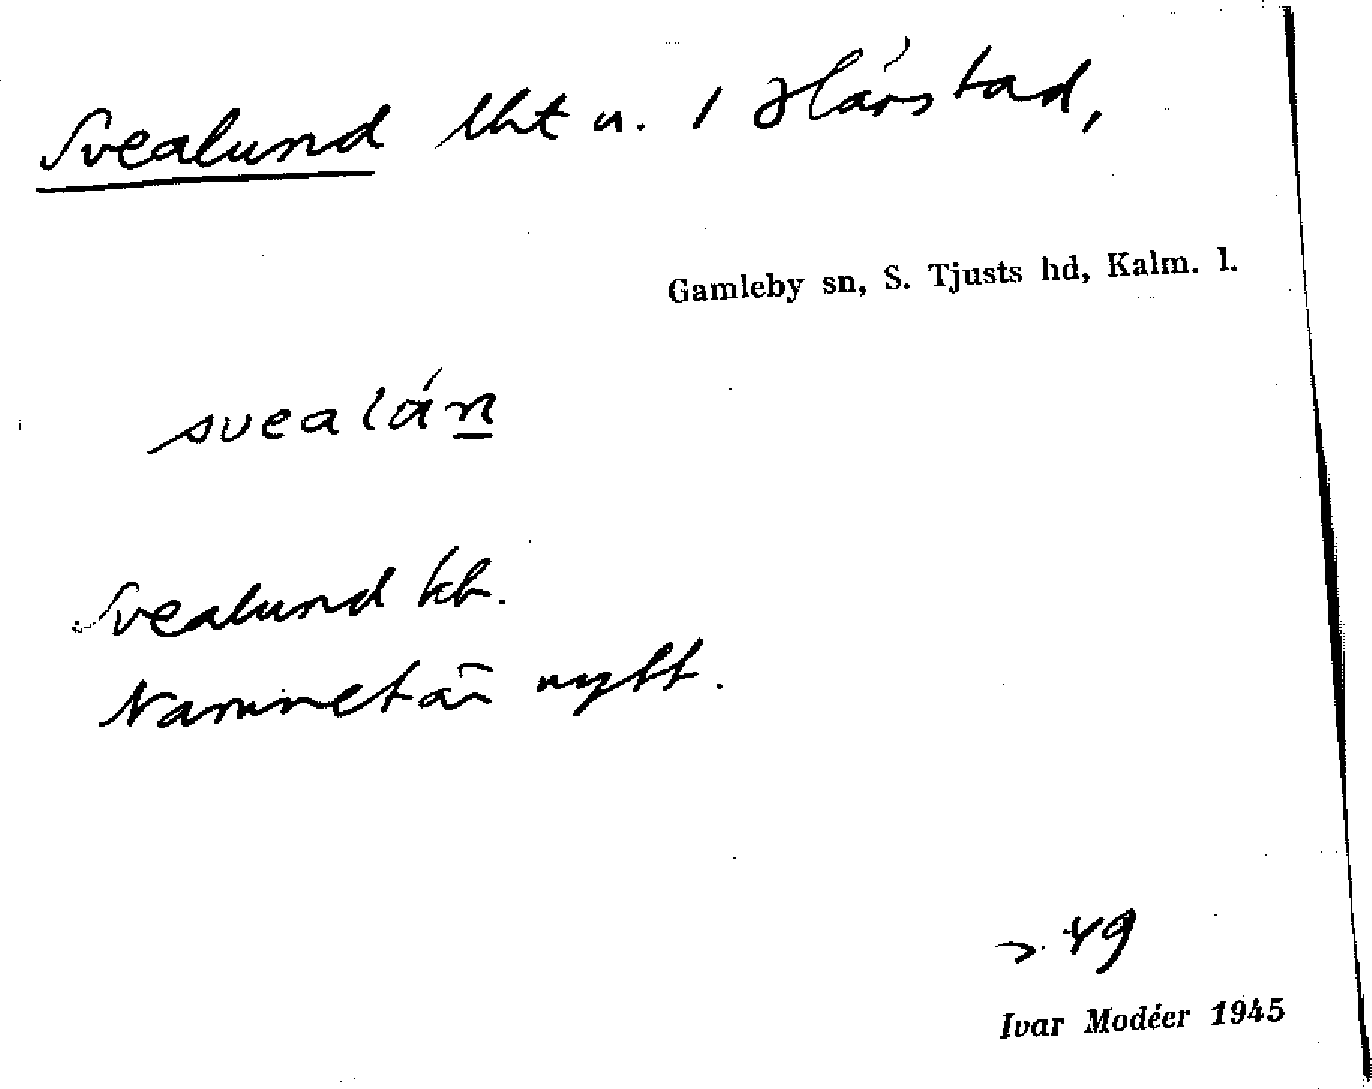 Svealund lht u. 1 Hårstad,
Gamleby sn, S. Tjusts hd, Kalm. l.
svealán
Svealund kb.
Namnet är nytt.
49
Ivar Modéer 1945